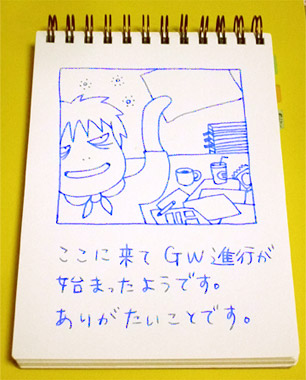 ここに来てGW進行が
始まったようです。
ありがたいことです。